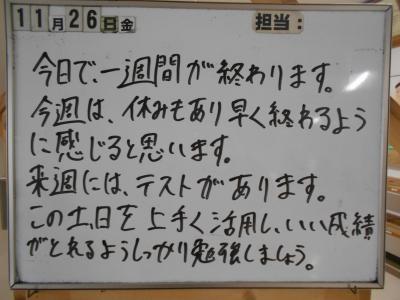 11月26日金 担当：
今日で、一週間が終わります。
今週は、休みもあり早く終わるよう
に感じると思います。
来週には、テストがあります。
この土、日を上手く活用し、いい成績
がとれるようしっかり勉強しましょう。